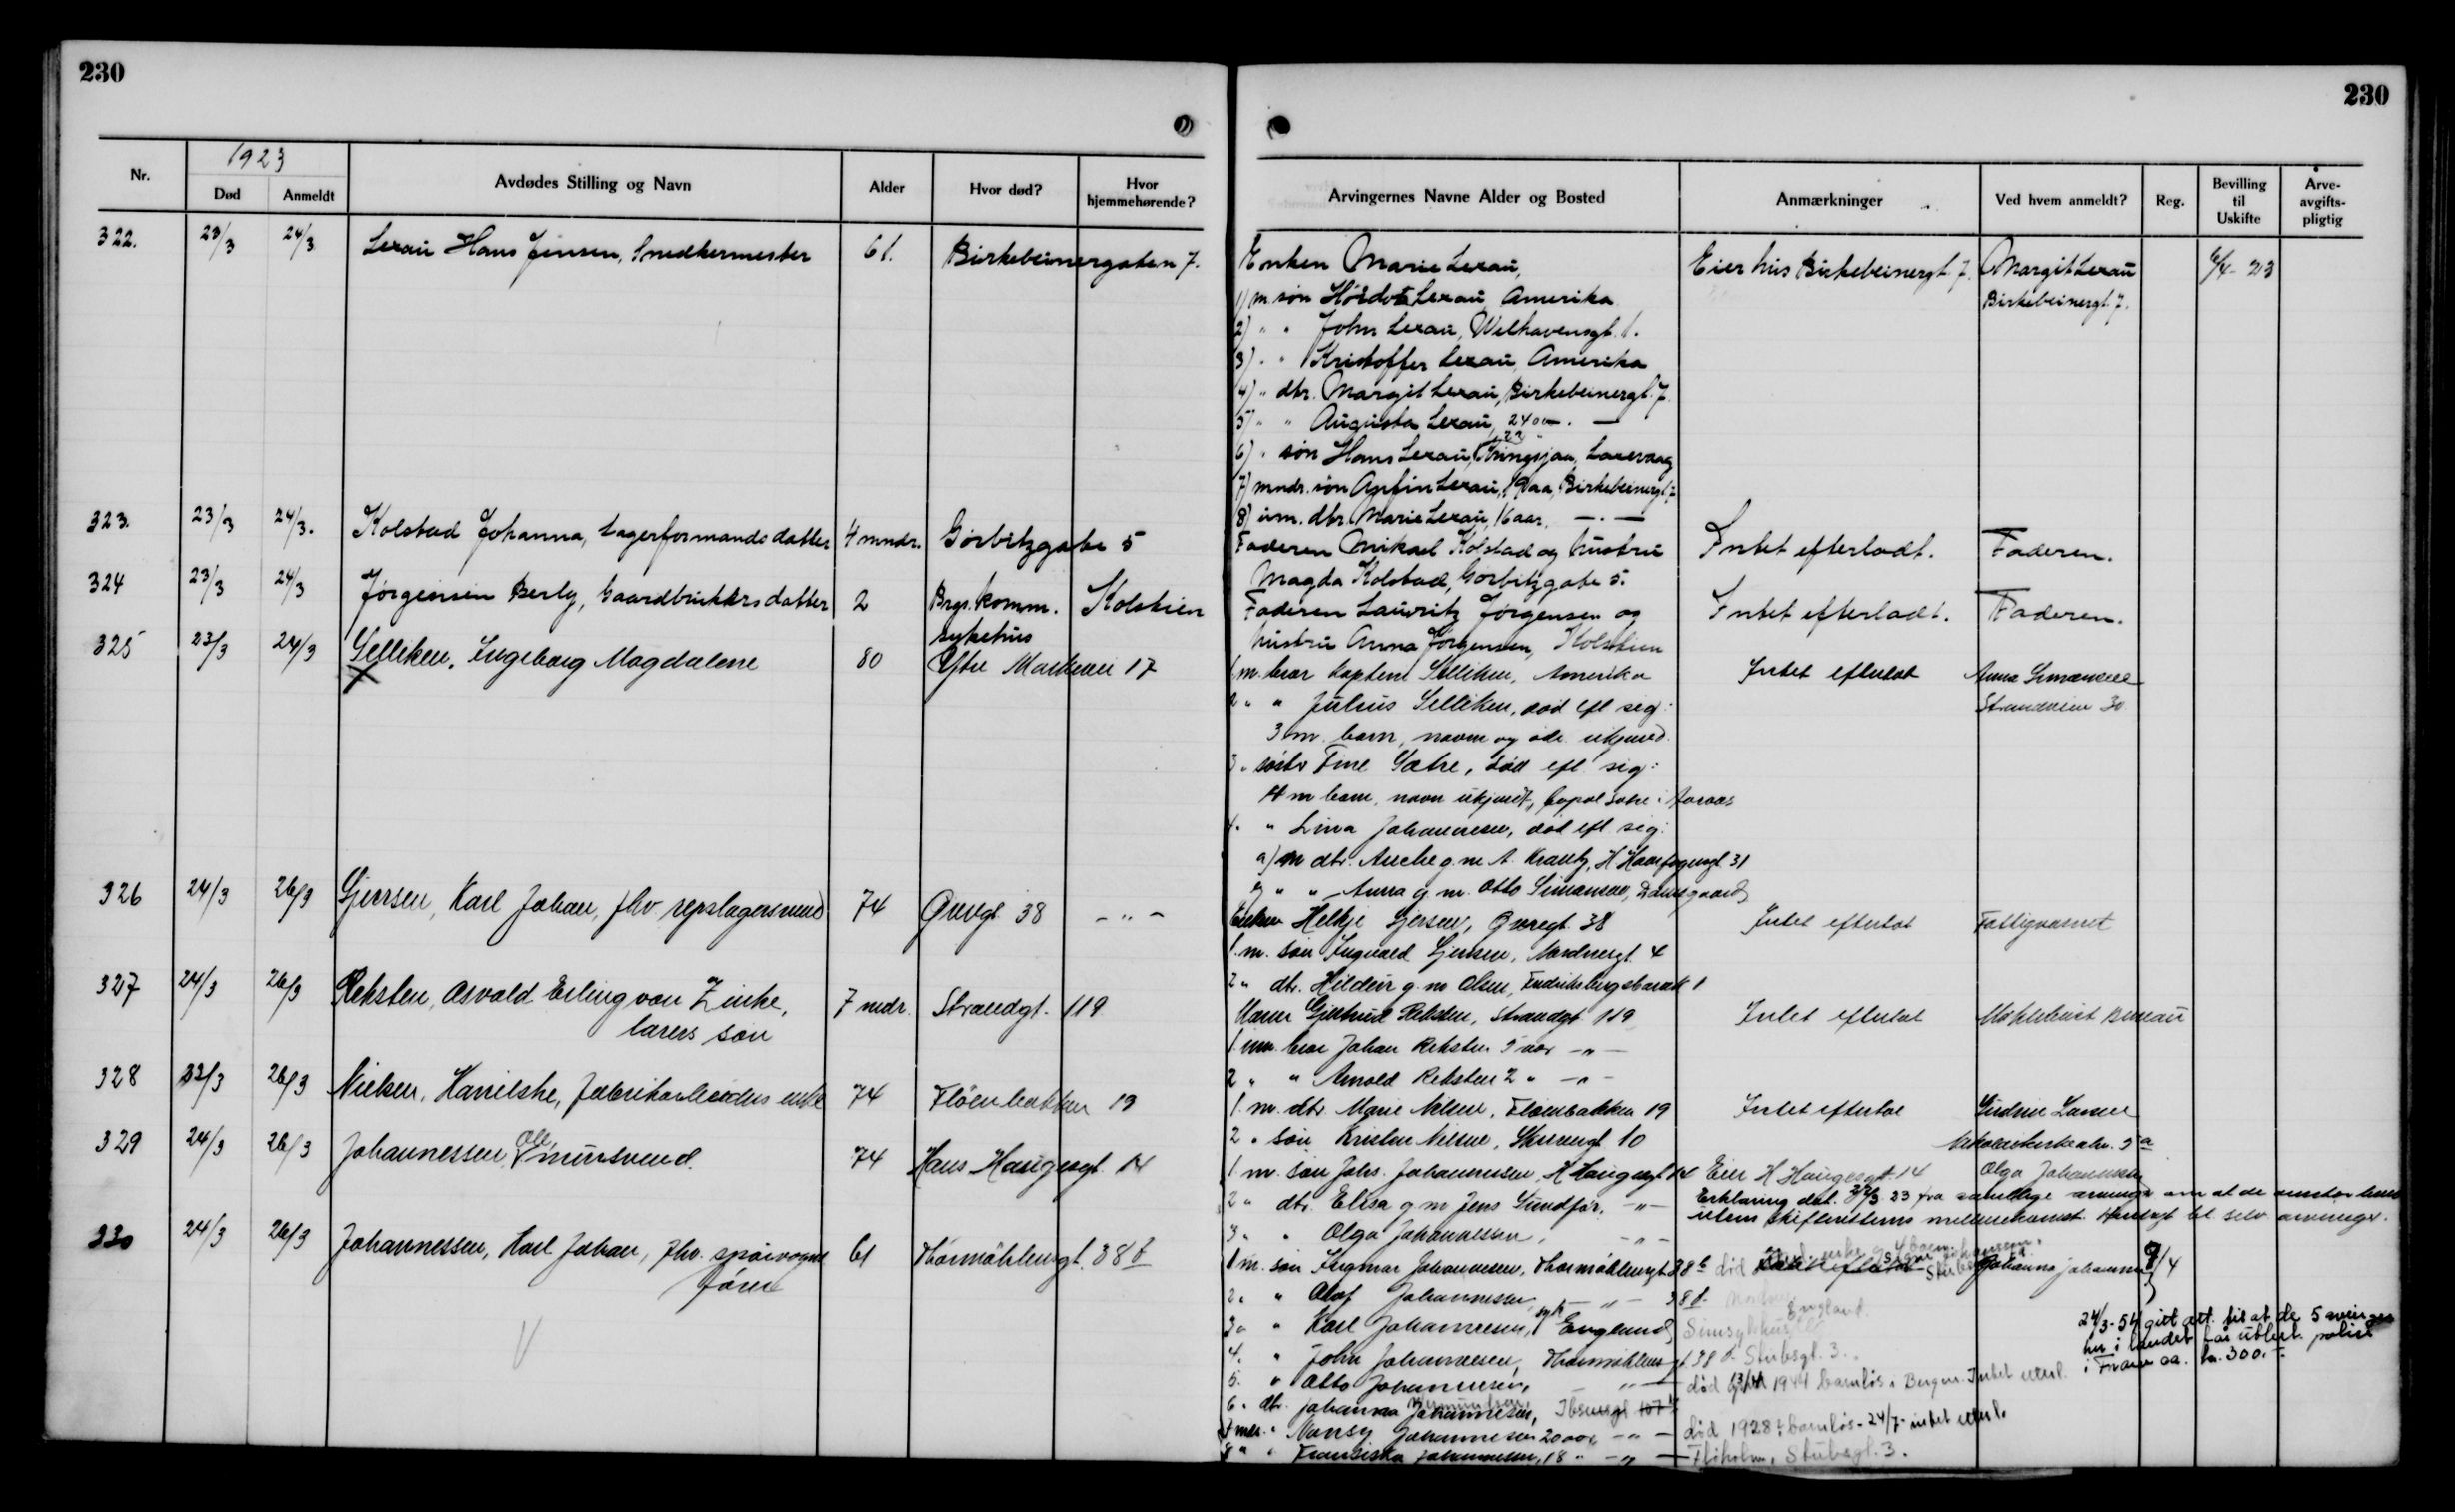 230
230
1923
Nr.
Død
Anmeldt
Avdødes Stilling og Navn
Alder
Hvor død?
Hvor hjemmehørende?
Arvingernes Navne Alder og Bosted
Anmærkninger
Ved hvem anmeldt?
Reg.
Bevilling til Uskifte
Arve-avgifts-pligtig
322. 23/3 24/3 Lexau Hans Jensen, Snedkermester 61. Birkebeinergaten 7.
Enken Marie Lexau, Eier hus Birkebeinergt. 7. Margit Lexau 6/4-23
1) m søn Lexau, Amerika Birkebeinergt. 7.
2) " " John Lexau, Welhavensgt. 1.
3) " " Kristoffer Lexau, Amerika
4) " dtr. Margit Lexau, Birkebeinergt. 7.
5) " " Augusta Lexau, 24 aa —.—
6) " søn Hans Lexau, Laxevaag
7) mndr. søn Lexau, 19 aa, Birkebeinergt. 7
8) um. dtr. Marie Lexau, 16 aar. —.—
323. 23/3 24/3. Kolstad Johanna, Lagerformands datter 4 mndr. Gørbitzgate 5
Faderen Mikael Kolstad og hustru Intet efterladt. Faderen.
Magda Kolstad, Gørbitzgate 5.
324 23/3 24/3 Jørgensen Berly, Gaardbrukers datter 2 Brgs. komm. sykehus Kolstien
Faderen Lauritz Jørgensen og Intet efterladt. Faderen.
hustru Anna Jørgensen, Kolstien
325 23/3 24/3 Selliken, Ingeborg Magdalene 80 Øvre Markevei 17
1. m. bror Selliken, Amerika Intet efterlat Anna Simonsen
2 " " Julius Selliken, død eft sig: Strandveien 30
3 m. barn, navn og adr. ukjend.
3 " søster Fine Sætre, død eft. sig:
4 m barn, navn ukjendt,
4. " Lina Johannesen, død eft. sig:
a) m dtr. g. m. A. Krantz, H Haarfagersgt 31
" " Anna g. m. Otto Simonsen, Damsgaard
326 24/3 26/3 Gjersen, Karl Johan, fhv. repslagersvend 74 Øvregt 38 - " -
Enken Helkje Gjersen, Øvregt. 38 Intet efterlat Fattigvæsnet
1. m. søn Ingvald Gjersen, Nordnesgt. 4
2 " dtr. Hildur g. m Olsen, Fredriksbergsbarak 1
327 24/3 26/3 Reksten, Osvald Erling von Zinke, 7 mdr. Strandgt. 119
lærers søn
Moren Gjertrud Reksten, Strandgt. 119 Intet efterlat Møhlebust Bureau
1. um. bror Johan Reksten 5 aar — " —
2 " " Arnold Reksten 2 " — " —
328 23/3 26/3 Nielsen, Fabrikarbeiders enke 74 Fløenbakken 19
1. m. dtr. Marie Nilsen, Fløenbakken 19 Intet efterlat Larsen
2 " søn Kristen Nilsen, 10 Nikolaikirkealm. 5a
329 24/3 26/3 Johannessen, Ole, mursvend. 74 Hans Haugesgt. 14
1. m. søn Johs. Johannessen, H Haugesgt 14 Eier H Haugesgt. 14 Olga Johannessen
2 " dtr. Elisa g m Jens Sundfør, — " — Erklæring dat. 23 fra samtlige arvinger om at de
3 " " Olga Johannessen, — " — uten skifterettens mellemkomst. til selv arvinger.
330 24/3 26/3 Johannessen, Karl Johan, fhv. sporvogns 61 Thormøhlensgt. 38 b
fører
1 m. søn Ingmar Johannessen, Thormøhlensgt. 38 b død Johanna Johannes 9/4
2 " " Olaf Johannessen, — " — 38 b.
3 " " Karl Johannessen, England England
4. " John Johannessen, Thormøhlensgt 38 b Stubsgt. 3.
5. " Otto Johannessen, — " — død 1944 barnløs i Bergen. Intet efterl.
24/3-54 gitt att. til at de 5 arvinger
her i landet får utbet. polise
i Fram aa. kr. 300.-
6 " dtr. Johanna Johannessen, Ibsensgt 107
7 " Nansy Johannessen 20 aar, — " — død 1928 barnløs - 24/7 - intet efterl.
8 " " Franciska Johannessen, 18 " — " — Fløholm, Stubsgt. 3.